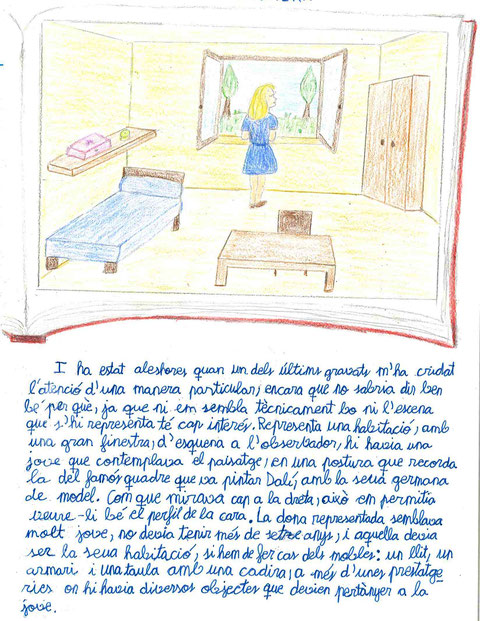 I ha estat aleshores quan un dels últims gravats m'ha cridat
l'atenció d'una manera particular, encara que no sabria dir ben
bé per què, ja que ni em sembla tècnicament bo ni l'escena
que s'hi representa té cap interés. Representa una habitació, amb
una gran finestra; d'esquena a l'observador, hi havia una
jove que contemplava el paisatge, en una postura que recorda
la del famós quadre que va pintar Dalí, amb la seua germana
de model. Com que mirava cap a la dreta, això em permitia
veure-li bé el perfil de la cara. La dona representada semblava
molt jove, no devia tenir més de setze anys, i aquella devia
ser la seua habitació, si hem de fer cas dels mobles: un llit, un
armari i una taula amb una cadira, a més d'unes prestatge
ries on hi havia diversos objectes que devien pertànyer a la
jove.